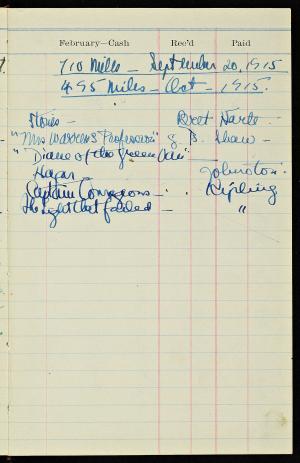 February—Cash Rec'd Paid
710 Miles — September 20, 1915
495 miles — Oct — 1915.
Stories — Bret Harte —
"Mrs Warrens Profession" G. B. Shaw —
"Diane of the Green Van" —
Hagar — Johnston.
Captain Courageous — Kipling
The light that failed — "